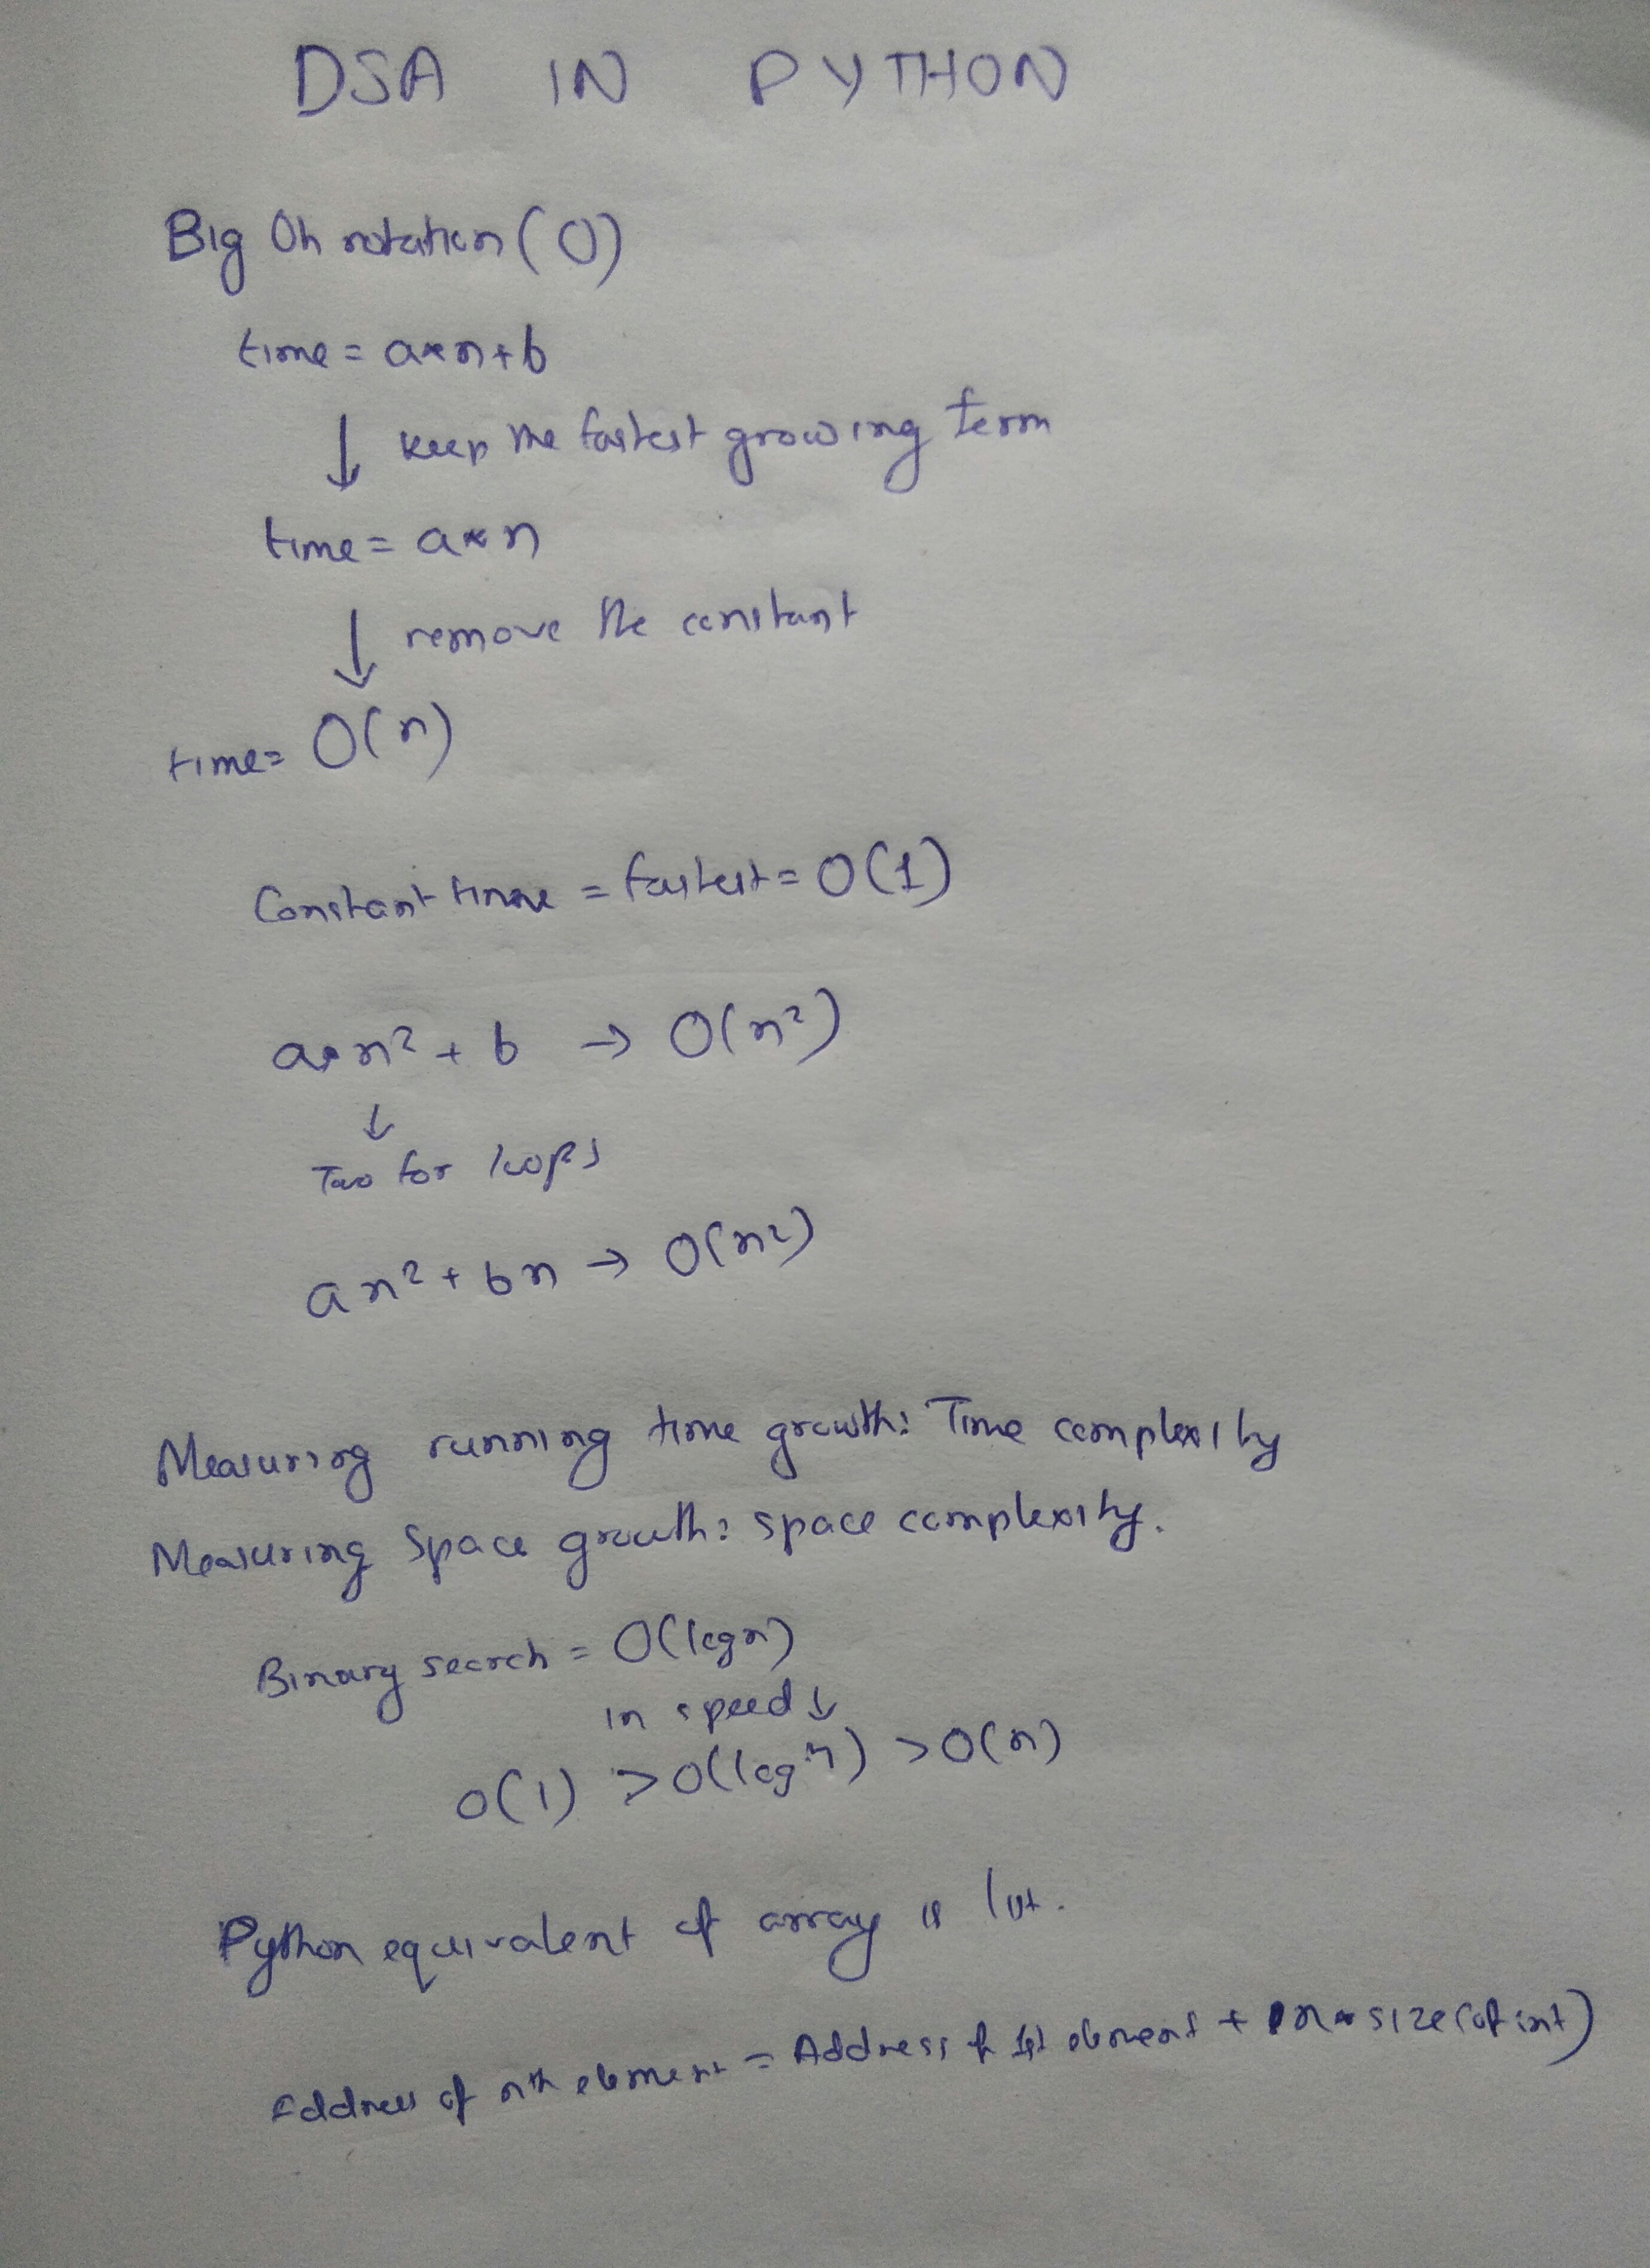 DSA IN PYTHON
Big Oh notation (O)
time = a*n+b
↓ keep the fastest growing term
time = a*n
↓ remove the constant
time = O(n)
Constant time = fastest = O(1)
a*n² + b → O(n²)
↓
Two for loops
an² + bn → O(n²)
Measuring running time growth: Time complexity
Measuring Space growth: space complexity.
Binary search = O(logn)
in speed ↓
O(1) > O(log n) > O(n)
Python equivalent of array is list.
Address of nth element = Address of 1st element + n * size(of int)